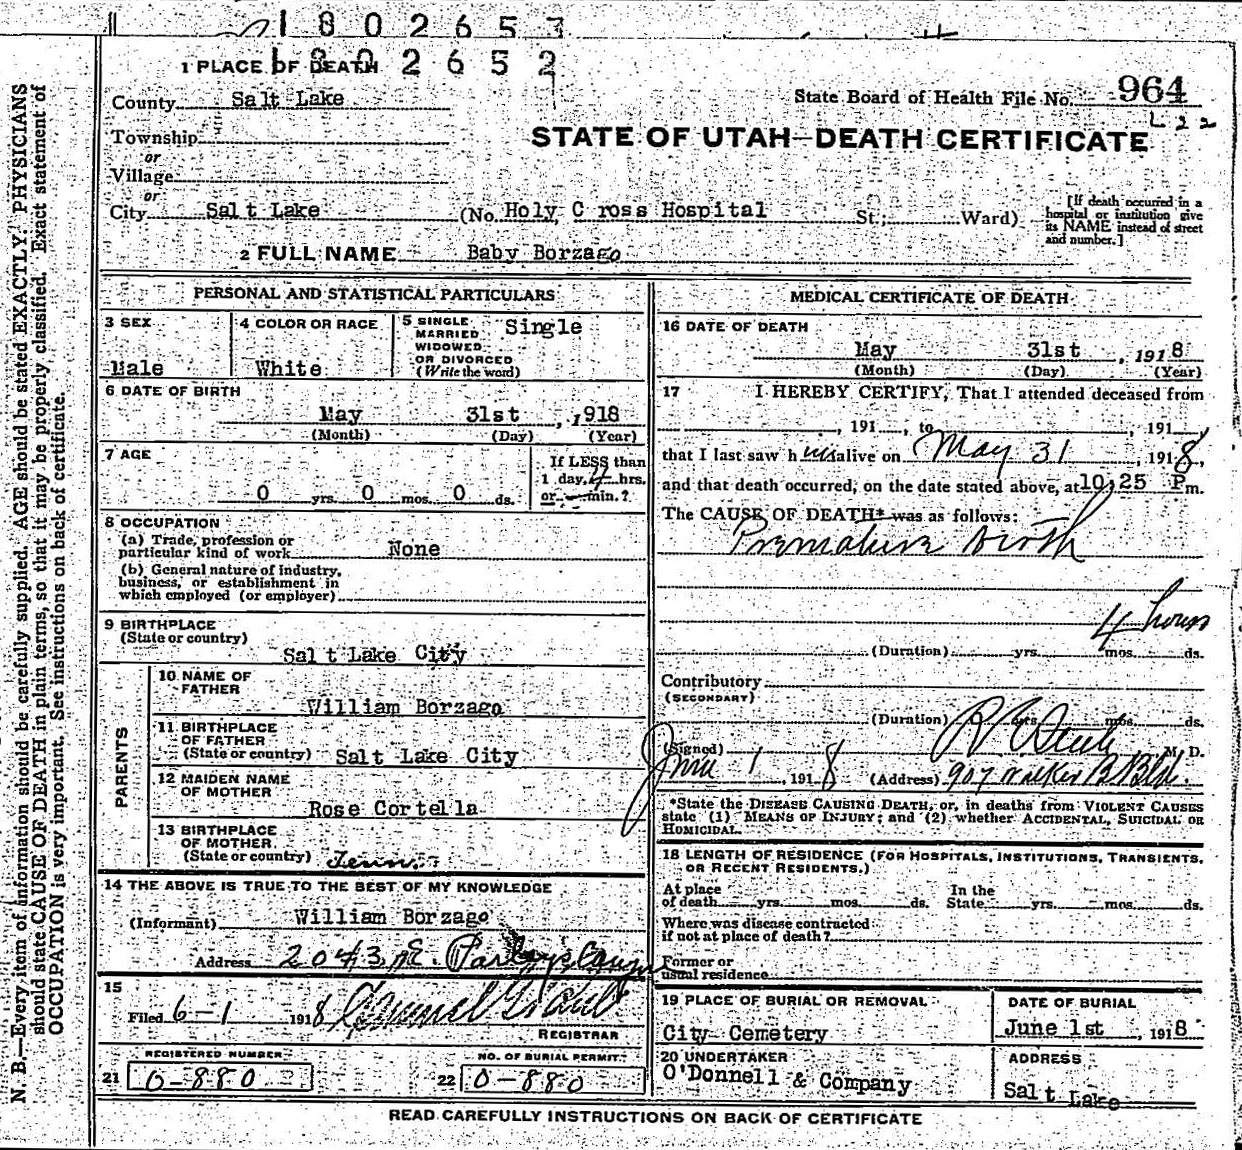 1802653
1802652
1 PLACE OF DEATH
County Salt Lake
State Board of Health File No. 964
L22
Township
STATE OF UTAH—DEATH CERTIFICATE
or
Village
or
City Salt Lake (No. Holy Cross Hospital St.; Ward)
[If death occurred in a hospital or institution give its NAME instead of street and number.]
2 FULL NAME Baby Borzago
PERSONAL AND STATISTICAL PARTICULARS
3 SEX Male
4 COLOR OR RACE White
5 SINGLE MARRIED WIDOWED OR DIVORCED (Write the word) Single
6 DATE OF BIRTH
May 31st, 1918
(Month) (Day) (Year)
7 AGE
0 yrs. 0 mos. 0 ds.
If LESS than
1 day, 4 hrs.
or — min.?
8 OCCUPATION
(a) Trade, profession or
particular kind of work None
(b) General nature of industry,
business, or establishment in
which employed (or employer)
9 BIRTHPLACE
(State or country)
Salt Lake City
PARENTS
10 NAME OF
FATHER
William Borzago
11 BIRTHPLACE
OF FATHER
(State or country) Salt Lake City
12 MAIDEN NAME
OF MOTHER
Rose Cortella
13 BIRTHPLACE
OF MOTHER
(State or country) Tenn.
14 THE ABOVE IS TRUE TO THE BEST OF MY KNOWLEDGE
(Informant) William Borzago
Address 2043 E. Parley's Canyon
15
Filed 6-1 1918
REGISTRAR
REGISTERED NUMBER
21 0-880
NO. OF BURIAL PERMIT
22 0-880
MEDICAL CERTIFICATE OF DEATH
16 DATE OF DEATH
May 31st, 1918
(Month) (Day) (Year)
17 I HEREBY CERTIFY, That I attended deceased from
, 191 , to , 191 ,
that I last saw him alive on May 31, 1918,
and that death occurred, on the date stated above, at 10.25 P m.
The CAUSE OF DEATH* was as follows:
Premature birth
4 hours
(Duration) yrs. mos. ds.
Contributory
(SECONDARY)
(Duration) yrs. mos. ds.
(Signed) M. D.
June 1, 1918 (Address) 907 Walker B. Bld.
*State the DISEASE CAUSING DEATH, or, in deaths from VIOLENT CAUSES
state (1) MEANS OF INJURY; and (2) whether ACCIDENTAL, SUICIDAL OR
HOMICIDAL.
18 LENGTH OF RESIDENCE (FOR HOSPITALS, INSTITUTIONS, TRANSIENTS,
OR RECENT RESIDENTS.)
At place
of death yrs. mos. ds.
In the
State yrs. mos. ds.
Where was disease contracted
if not at place of death?
Former or
usual residence
19 PLACE OF BURIAL OR REMOVAL
City Cemetery
DATE OF BURIAL
June 1st, 1918
20 UNDERTAKER
O'Donnell & Company
ADDRESS
Salt Lake
READ CAREFULLY INSTRUCTIONS ON BACK OF CERTIFICATE
N. B.—Every item of information should be carefully supplied. AGE should be stated EXACTLY. PHYSICIANS
should state CAUSE OF DEATH in plain terms, so that it may be properly classified. Exact statement of
OCCUPATION is very important. See instructions on back of certificate.